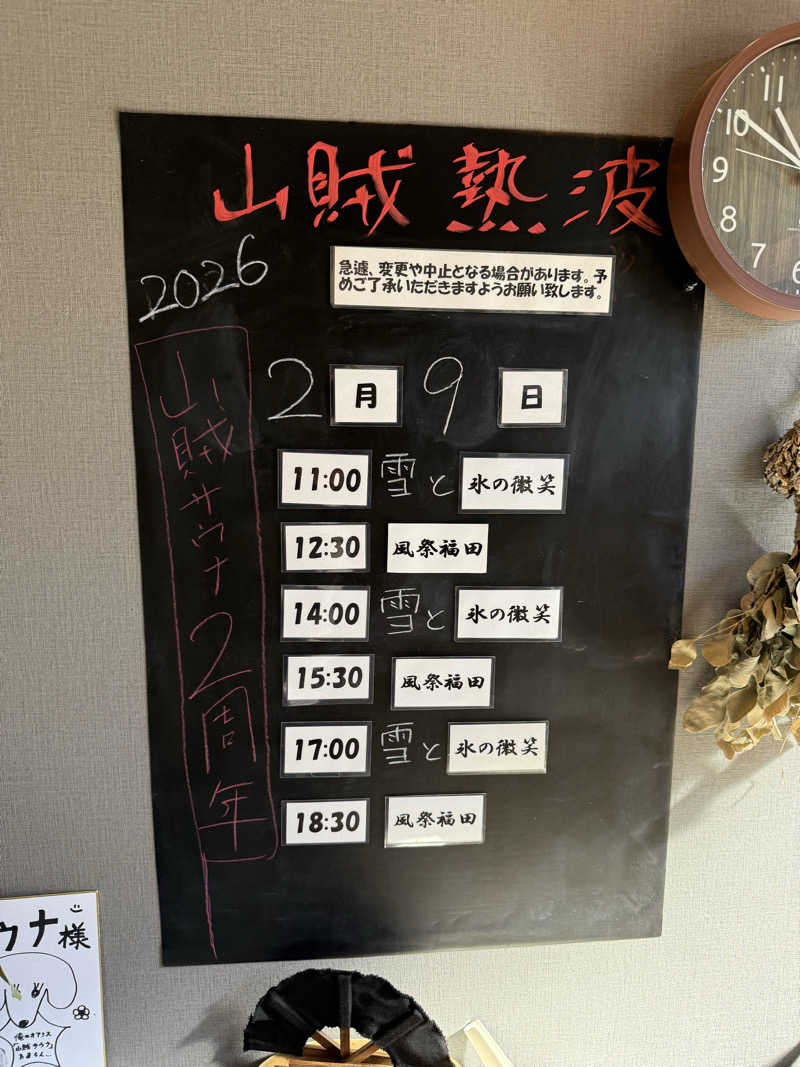 山賊熱波
2026
急遽、変更や中止となる場合があります。予
めご了承いただきますようお願い致します。
山賊サウナ2周年
2月9日
11:00 雪と氷の微笑
12:30 風祭福田
14:00 雪と氷の微笑
15:30 風祭福田
17:00 雪と氷の微笑
18:30 風祭福田
11
10
9
8
7
6
ウナ様
俺のオアシス
「山賊サウナ」